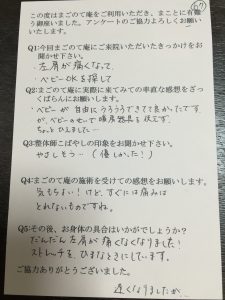 67
この度はまごのて庵をご利用いただき、まことに有難
う御座いました。アンケートのご協力よろしくお願い
いたします。
Q1:今回まごのて庵にご来院いただいたきっかけをお
聞かせ下さい。
左肩が痛くなって、
・ベビーOKを探して
Q2:まごのて庵に実際に来てみての率直な感想をざっ
くばらんにお願いします。
・ベビーが自由にうろうろできてて良かったです
が、ベビーのせいで暖房器具を
ちょっとひえました…
Q3:整体師こばやしの印象をお聞かせ下さい。
やさしそう…(優しかった!)
Q4:まごのて庵の施術を受けての感想をお願いします。
気もちよい!けど、すぐには痛みは
とれないものですね。
Q5:その後、お身体の具合はいかがでしょうか?
だんだん左肩が痛くなくなりました!
ストレッチを、ひまなときにしています。
ご協力ありがとうございました。
遅くなりましたが…